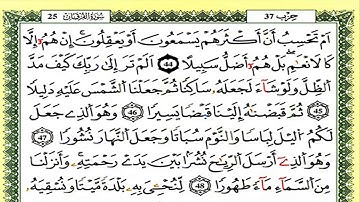 حِزْب 37 سُورَةُ الْفُرْقَانِ 25
اَمْ تَحْسِبُ أَنَّ أَكْثَرَهُمْ يَسْمَعُونَ أَوْ يَعْقِلُونَ إِنْ هُمُۥ إِلَّا
كَالَانْعَٰمِ بَلْ هُمُۥ أَضَلُّ سَبِيلًا 44 أَلَمْ تَرَ إِلَىٰ رَبِّكَ كَيْفَ مَدَّ
الظِّلَّ وَلَوْ شَآءَ لَجَعَلَهُۥ سَاكِنًا ثُمَّ جَعَلْنَا الشَّمْسَ عَلَيْهِ دَلِيلًا
45 ثُمَّ قَبَضْنَٰهُ إِلَيْنَا قَبْضًا يَسِيرًا 46 وَهُوَ الَّذِي جَعَلَ
لَكُمُ الَّيْلَ لِبَاسًا وَالنَّوْمَ سُبَاتًا وَجَعَلَ النَّهَارَ نُشُورًا 47
وَهُوَ الَّذِي أَرْسَلَ الرِّيَٰحَ نُشُرًا بَيْنَ يَدَيْ رَحْمَتِهِۦ وَأَنزَلْنَا
مِنَ السَّمَآءِ مَآءً طَهُورًا 48 لِّنُحْـِۧيَ بِهِۦ بَلْدَةً مَّيْتًا وَنُسْقِيَهُۥ